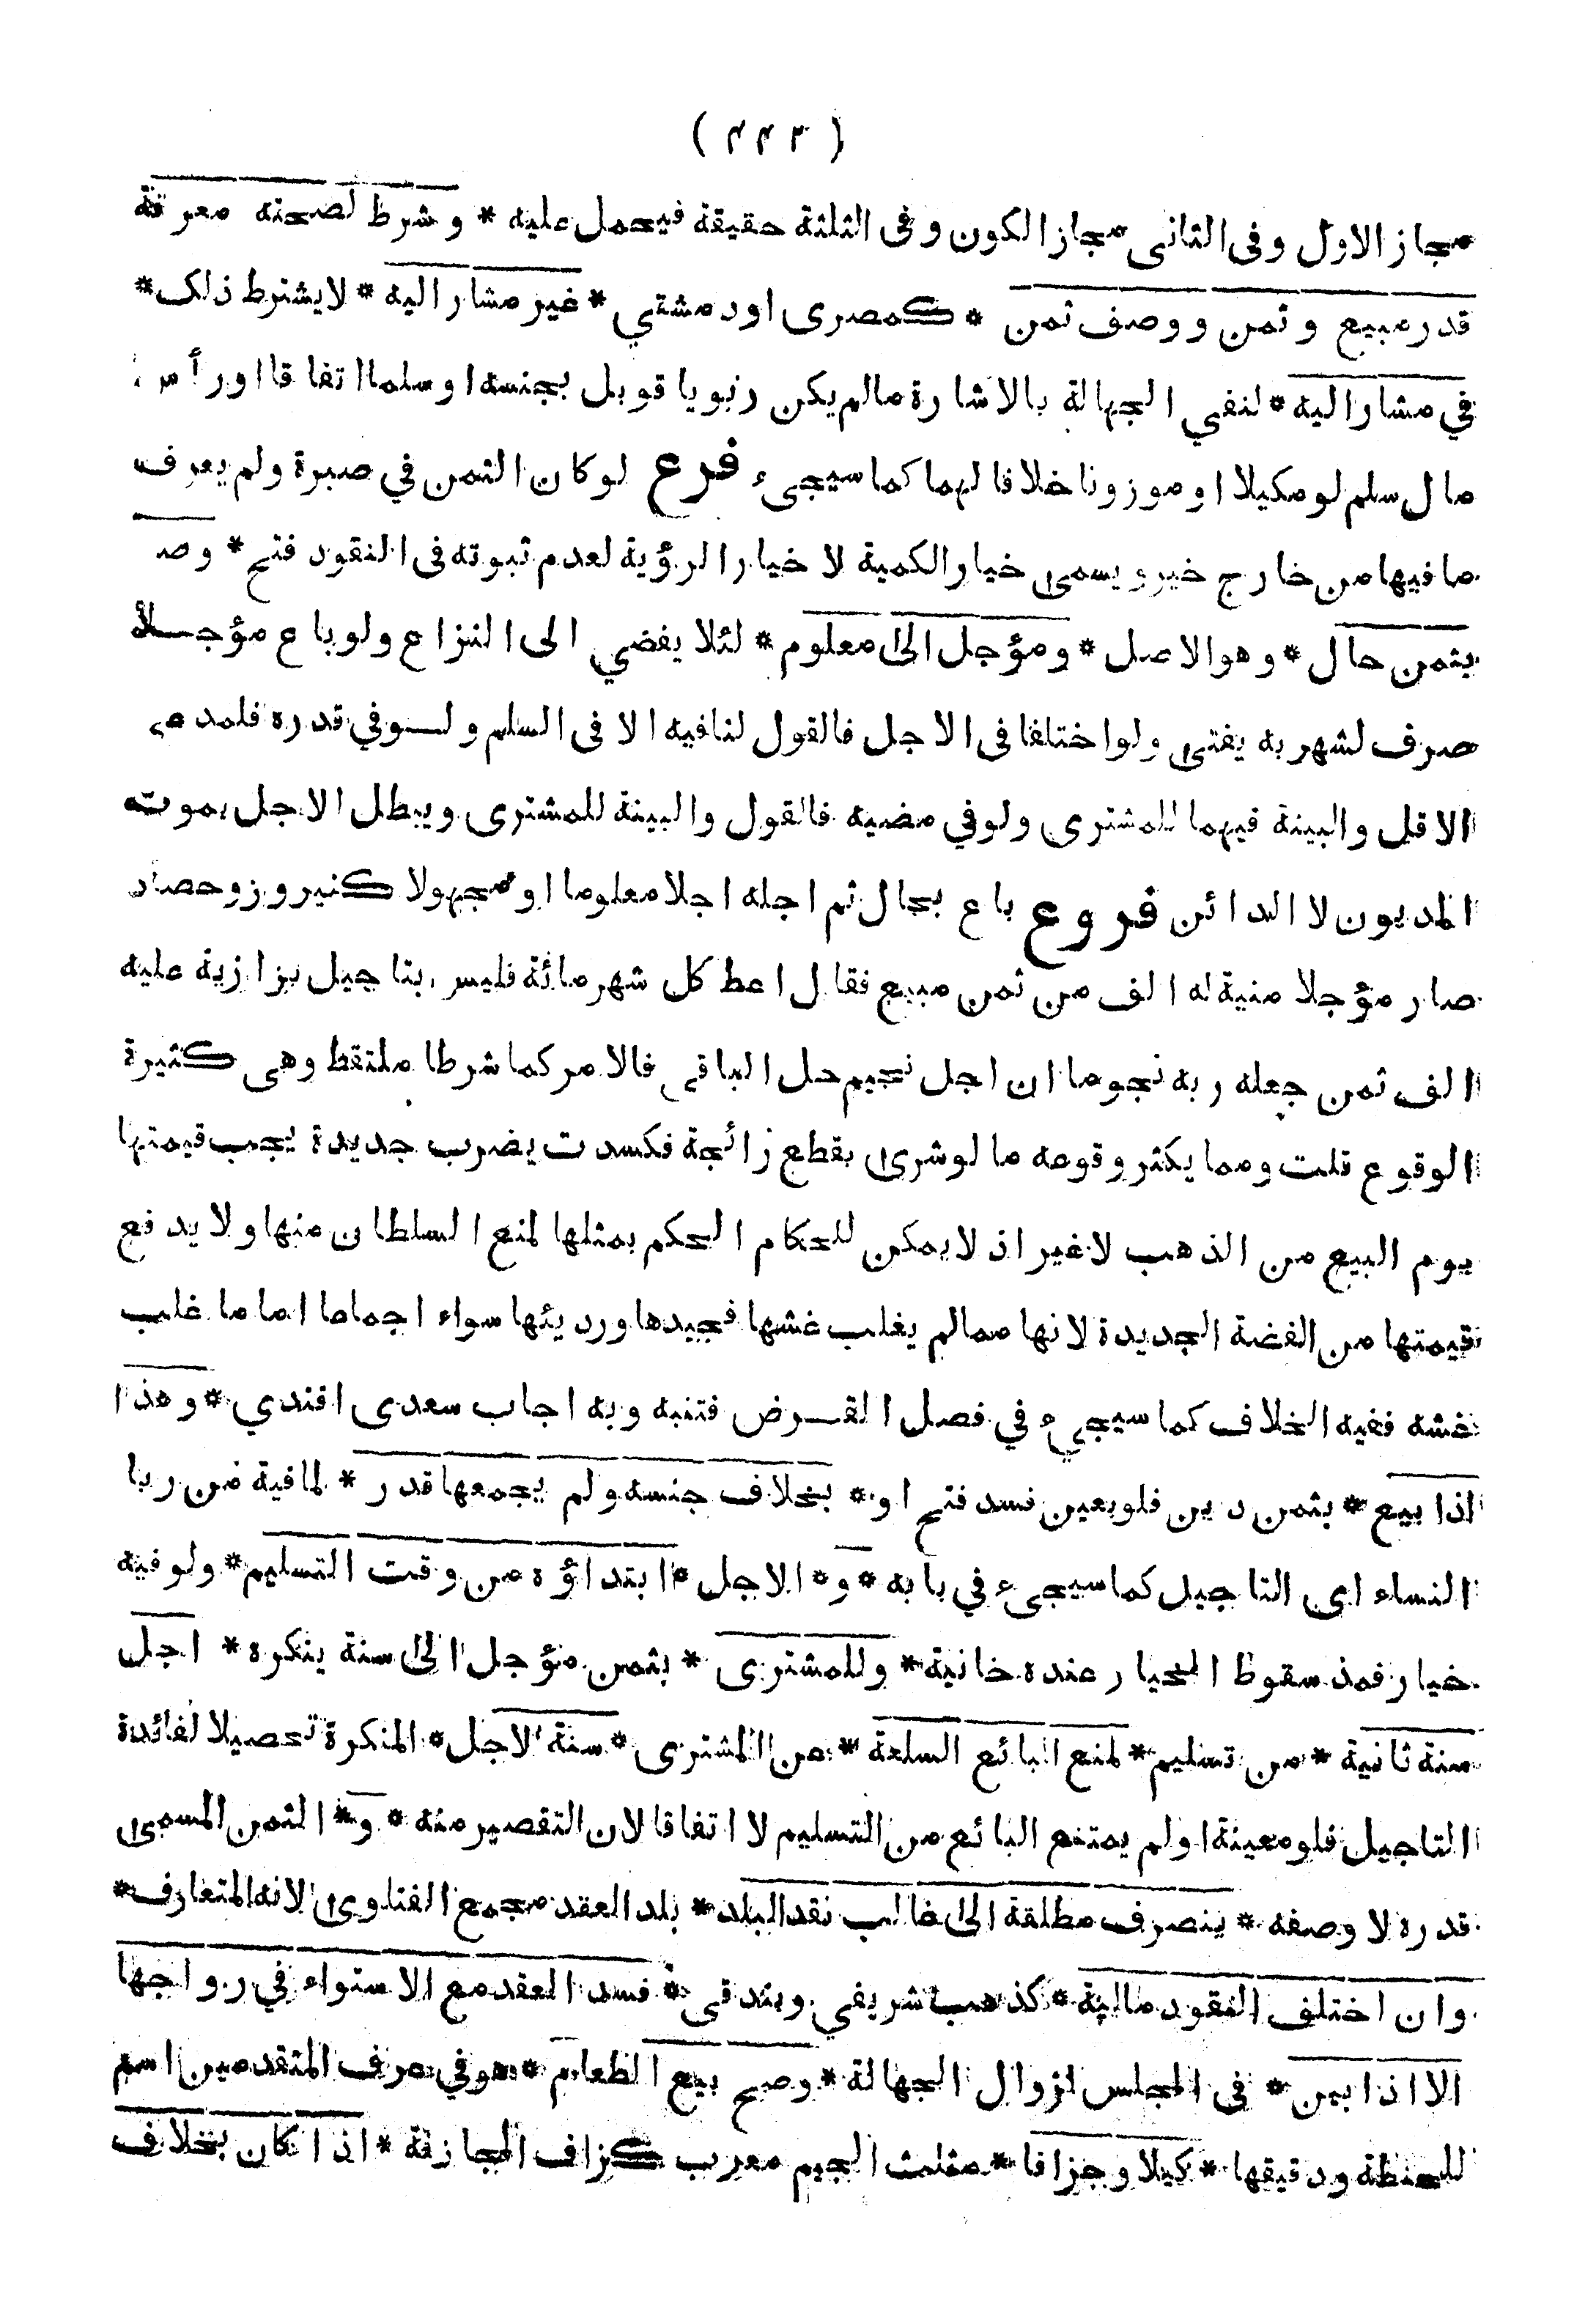 ( ٤٤٣ )
مجاز الاول وفى الثانى مجاز الكون وفى الثلثة حقيقة فيحمل عليه * وشرط لصحته معرفة
قدر مبيع وثمن ووصف ثمن * كمصرى اودمشقي * غير مشار اليه * لايشترط ذلك *
في مشار اليه * لنفي الجهالة بالاشارة مالم يكن ربويا قوبل بجنسه اوسلما اتفاقا اورأس
مال سلم لو مكيلا اوموزونا خلافا لهما كما سيجىء فرع لوكان الثمن في صبرة ولم يعرف
مافيها من خارج خير ويسمى خيار الكمية لا خيار الرؤية لعدم ثبوته فى النقود فتح * وصح
بثمن حال * وهو الاصل * ومؤجل الى معلوم * لئلا يفضي الى النزاع ولو باع مؤجلا
صرف لشهر به يفتى ولواختلفا فى الاجل فالقول لنافيه الا فى السلم ولوفي قدره فلمدعى
الاقل والبينة فيهما للمشترى ولوفي مضيه فالقول والبينة للمشترى ويبطل الاجل بموت
المديون لا الدائن فروع باع بحال ثم اجله اجلا معلوما اومجهولا كنيروز وحصاد
صار مؤجلا منية له الف من ثمن مبيع فقال اعط كل شهر مائة فليس بتاجيل بزازية عليه
الف ثمن جعله ربه نجوما ان اخل نجيم حل الباقى فالامر كما شرطا ملتقط وهى كثيرة
الوقوع قلت ومما يكثر وقوعه ما لوشرى بقطع رائجة فكسدت بضرب جديدة يجب قيمتها
يوم البيع من الذهب لاغير اذ لايمكن للحكام الحكم بمثلها لمنع السلطان منها ولا يدفع
قيمتها من الفضة الجديدة لانها ممالم يغلب غشها فجيدها ورديئها سواء اجماعا اما ما غلب
غشه ففيه الخلاف كما سيجيء في فصل القرض فتنبه وبه اجاب سعدى افندي * وهذا
اذا بيع * بثمن دين فلو بعين فسد فتح او * بخلاف جنسه ولم يجمعها قدر * لمافية من ربا
النساء اى التاجيل كما سيجىء في بابه * و * الاجل * ابتداؤه من وقت التسليم * ولو فيه
خيار فمذ سقوط الخيار عنده خانية * وللمشترى * بثمن مؤجل الى سنة ينكره * اجل
سنة ثانية * من تسليم * لمنع البائع السلعة * من المشترى * سنة الاجل * المنكرة تحصيلا لفائدة
التاجيل فلو معينة اولم يمتنع البائع من التسليم لا اتفاقا لان التقصير منه * و * الثمن المسمى
قدره لا وصفه * ينصرف مطلقة الى غالب نقد البلد * بلد العقد مجمع الفتاوى لانه المتعارف *
وان اختلف النقود مالية * كذهب شريفي وبندقى * فسد العقد مع الاستواء في رواجها
الا اذا بين * فى المجلس لزوال الجهالة * وصح بيع الطعام * هو في عرف المتقدمين اسم
للحنطة ودقيقها * كيلا وجزافا * مثلث الجيم معرب كزاف المجازفة * اذا كان بخلاف